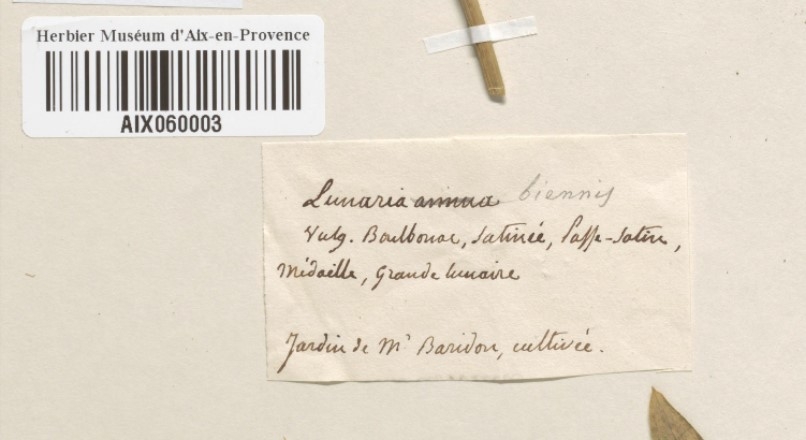 Herbier Muséum d'Aix-en-Provence
AIX060003
Lunaria annua biennis
Vulg. Bulbonac, Satinée, Passe-Satin,
Médaille, Grande lunaire
Jardin de Mr Baridon, cultivée.